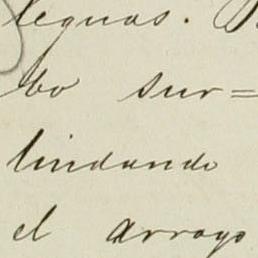 leguas.
bo sur=
lindando
el arroyo